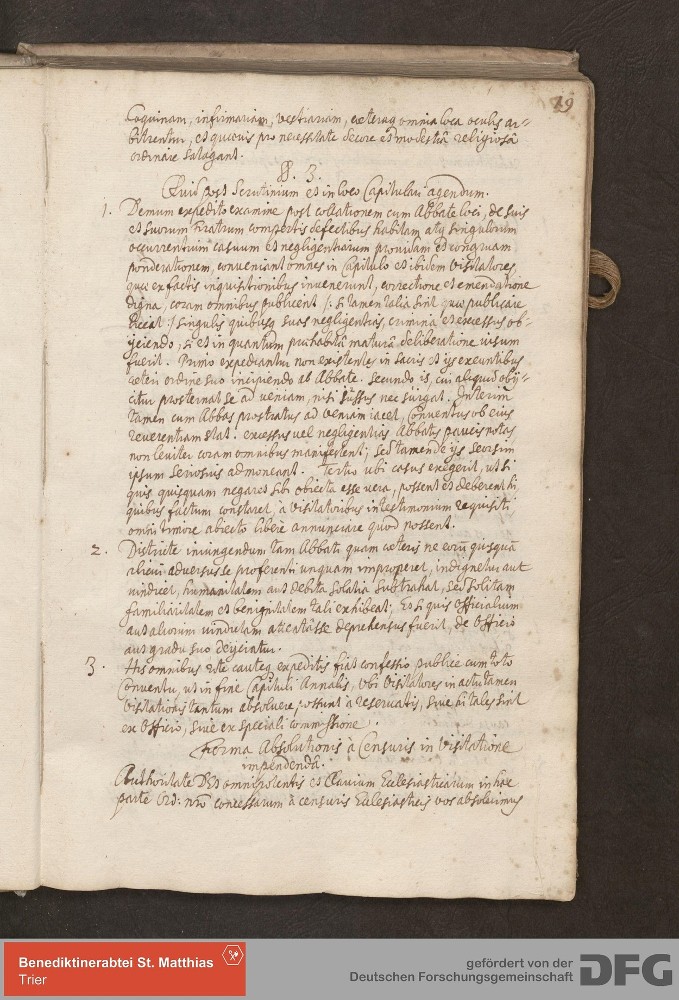 29
Coquinam, infirmariam, vestiariam, ceteraq omnia loca oculis ar-
bitrentur, et quaevis pro necessitate decore et modestia religiosa
ordinare satagant.
§. 3.
Quid post Scrutinium et in loco Capitulari agendum.
1. Demum expedito examine post collationem cum Abbate loci, de suis
et suorum Fratrum compertis defectibus habitam atq singulorum
occurrentium casuum et negligentiarum providam et congruam
ponderationem, conveniant omnes in Capitulo et ibidem Visitatores,
quae ex factis inquisitionibus invenerunt, correctione et emendatione
digna, coram omnibus publicent /: si tamen talia sint quae publicare
liceat :/ singulis quibusq suas negligentias, crimina et excessus ob-
ijciendo, si et in quantum praehabita matura deliberatione visum
fuerit. Primo expediantur non existentes in sacris et ijs exeuntibus
ceteri ordine suo incipiendo ab Abbate. Secundo is, cui aliquid obij-
citur prosternat se ad veniam, nisi jussus nec surgat. Interim
tamen cum Abbas prostratus ad veniam iacet, Conventus ob eius
reverentiam stat: excessus vel negligentias Abbatis paucis notas
non leviter coram omnibus manifestent; sed tamen de ijs seorsim
ipsum seriosius admoneant. Tertio ubi casus exegerit, ut si
quis quisquam negaret sibi obiecta esse vera, possent et deberent hi
quibus factum constaret, à Visitatoribus in testimonium requisiti
omni timore abiecto libere annunciare quod possent.
2. Districte iniungendum tam Abbati quam ceteris ne eorū quisquā
alicui adversus se proferenti unquam improperet, indignetur aut
vindicet, humanitatem aut debita solatia subtrahat, sed solitam
familiaritatem et benignitatem tali exhibeat; Et si quis Officialium
aut aliorum vindictam attentâsse deprehensus fuerit, de Officio
aut gradu suo deijciatur.
3. His omnibus rite cauteq expeditis fiat confessio publice cum toto
Conventu, ut in fine Capituli Annalis, Ubi Visitatores in actu tamen
Visitationis tantum absolvere possunt à reservatis, sive ut tales sint
ex Officio, sive ex speciali commissione.
Forma Absolutionis à Censuris in Visitatione
impendenda.
Authoritate DEI omnipotentis et Clavium Ecclesiasticarum in hac
parte Ord: nrō concessarum à censuris Ecclesiasticis vos absolvimus
Benediktinerabtei St. Matthias
Trier
gefördert von der
Deutschen Forschungsgemeinschaft
DFG